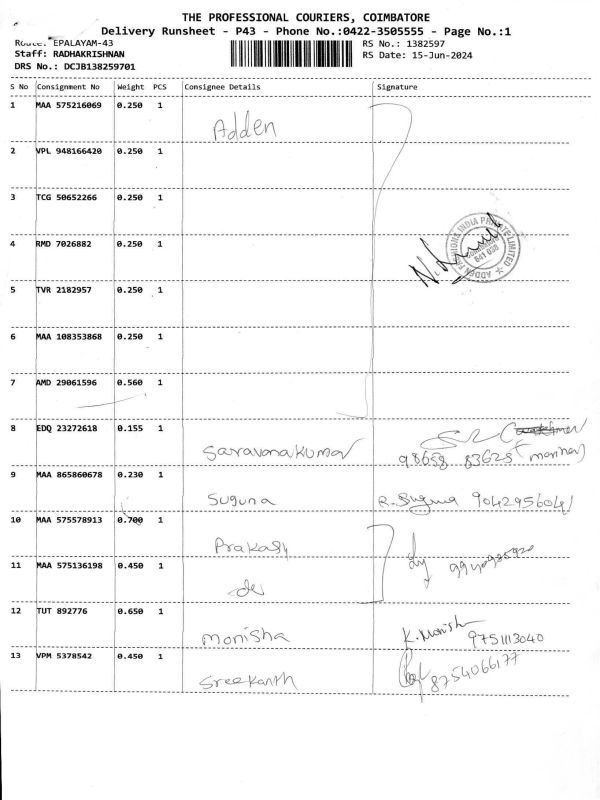 THE PROFESSIONAL COURIERS, COIMBATORE
Delivery Runsheet - P43 - Phone No.:0422-3505555 - Page No.:1
Route: EPALAYAM-43
RS No.: 1382597
Staff: RADHAKRISHNAN
RS Date: 15-Jun-2024
DRS No.: DCJB138259701
S No Consignment No Weight PCS Consignee Details Signature
1 MAA 575216069 0.250 1 Adden
2 VPL 948166420 0.250 1
3 TCG 50652266 0.250 1
4 RMD 7026882 0.250 1
ADDEN FASHIONS INDIA PRIVATE LIMITED
5 TVR 2182957 0.250 1
6 MAA 108353868 0.250 1
7 AMD 29061596 0.560 1
8 EDQ 23272618 0.155 1 Saravanakumar
9 MAA 865860678 0.230 1 Suguna R. Suguna
10 MAA 575578913 0.700 1 Prakash
11 MAA 575136198 0.450 1 do
12 TUT 892776 0.650 1 Monisha K. Monish 9751113040
13 VPM 5378542 0.450 1 Sreekanth 8754066177